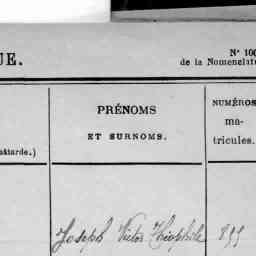 UE.
N° 100
de la Nomenclatu
PRÉNOMS
ET SURNOMS.
NUMÉROS
ma-
tricules.
bâtarde.)
Joseph Victor Théophile 899